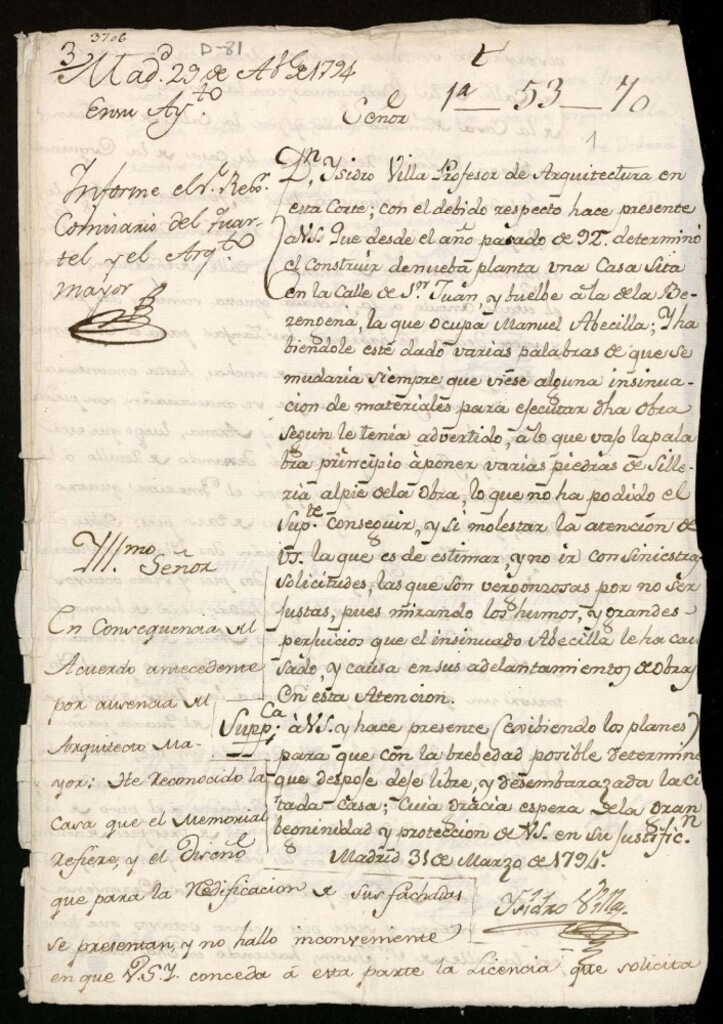 3706
3
Mad.d 29 de Ab.l de 1794
En su Ay.to
D-81
1a — 53 — 70
1
Señor
Informe el s.r Reg.or
Comisario del Quar-
tel y el Arq.to
mayor
D.n Ysidro Villa Profesor de Arquitectura en
esta Corte; con el debido respecto hace presente
a VS. Que desde el año pasado de 92. determinó
el Construir de nueba planta una Casa Sita
en la Calle de S.n Juan, y buelbe à la de la Be-
rengena, la que ocupa Manuel Abecilla; Y ha
biendole este dado varias palabras de que se
mudaria siempre que viese alguna insinua-
cion de materiales para ejecutar dha Obra
segun le tenia advertido, à lo que vajo la pala
bra principio à poner varias piedras de Sille-
ria al pie de la Obra, lo que no ha podido el
Sup.te conseguir, y si molestar la atencion de
VS. la que es de estimar, y no ir con siniestras
solicitudes, las que son vergonzosas por no ser
justas, pues mirando los humos, y grandes
perjuicios que el insinuado Abecilla le ha cau
sado, y causa en sus adelantamientos de obras
En esta Atencion.
Supp.ca à VS. y hace presente (exibiendo los planes)
para que con la brebedad posible determine
que despoje deje libre, y desembarazada la ci
tada Casa; Cuia Gracia espera de la Gran
beninidad y proteccion de VS. en su Justific.n
Madrid 31 de Marzo de 1794.
Ysidro Villa.
Yll.mo Señor
En Consequencia del
Acuerdo antecedente
por ausencia del
Arquitecto Ma-
yor: He Reconocido la
Casa que el Memorial
refiere, y el Diseño
que para la Redificacion de sus fachadas
se presentan, y no hallo inconveniente
en que V.S.Y. conceda á esta parte la Licencia que solicita